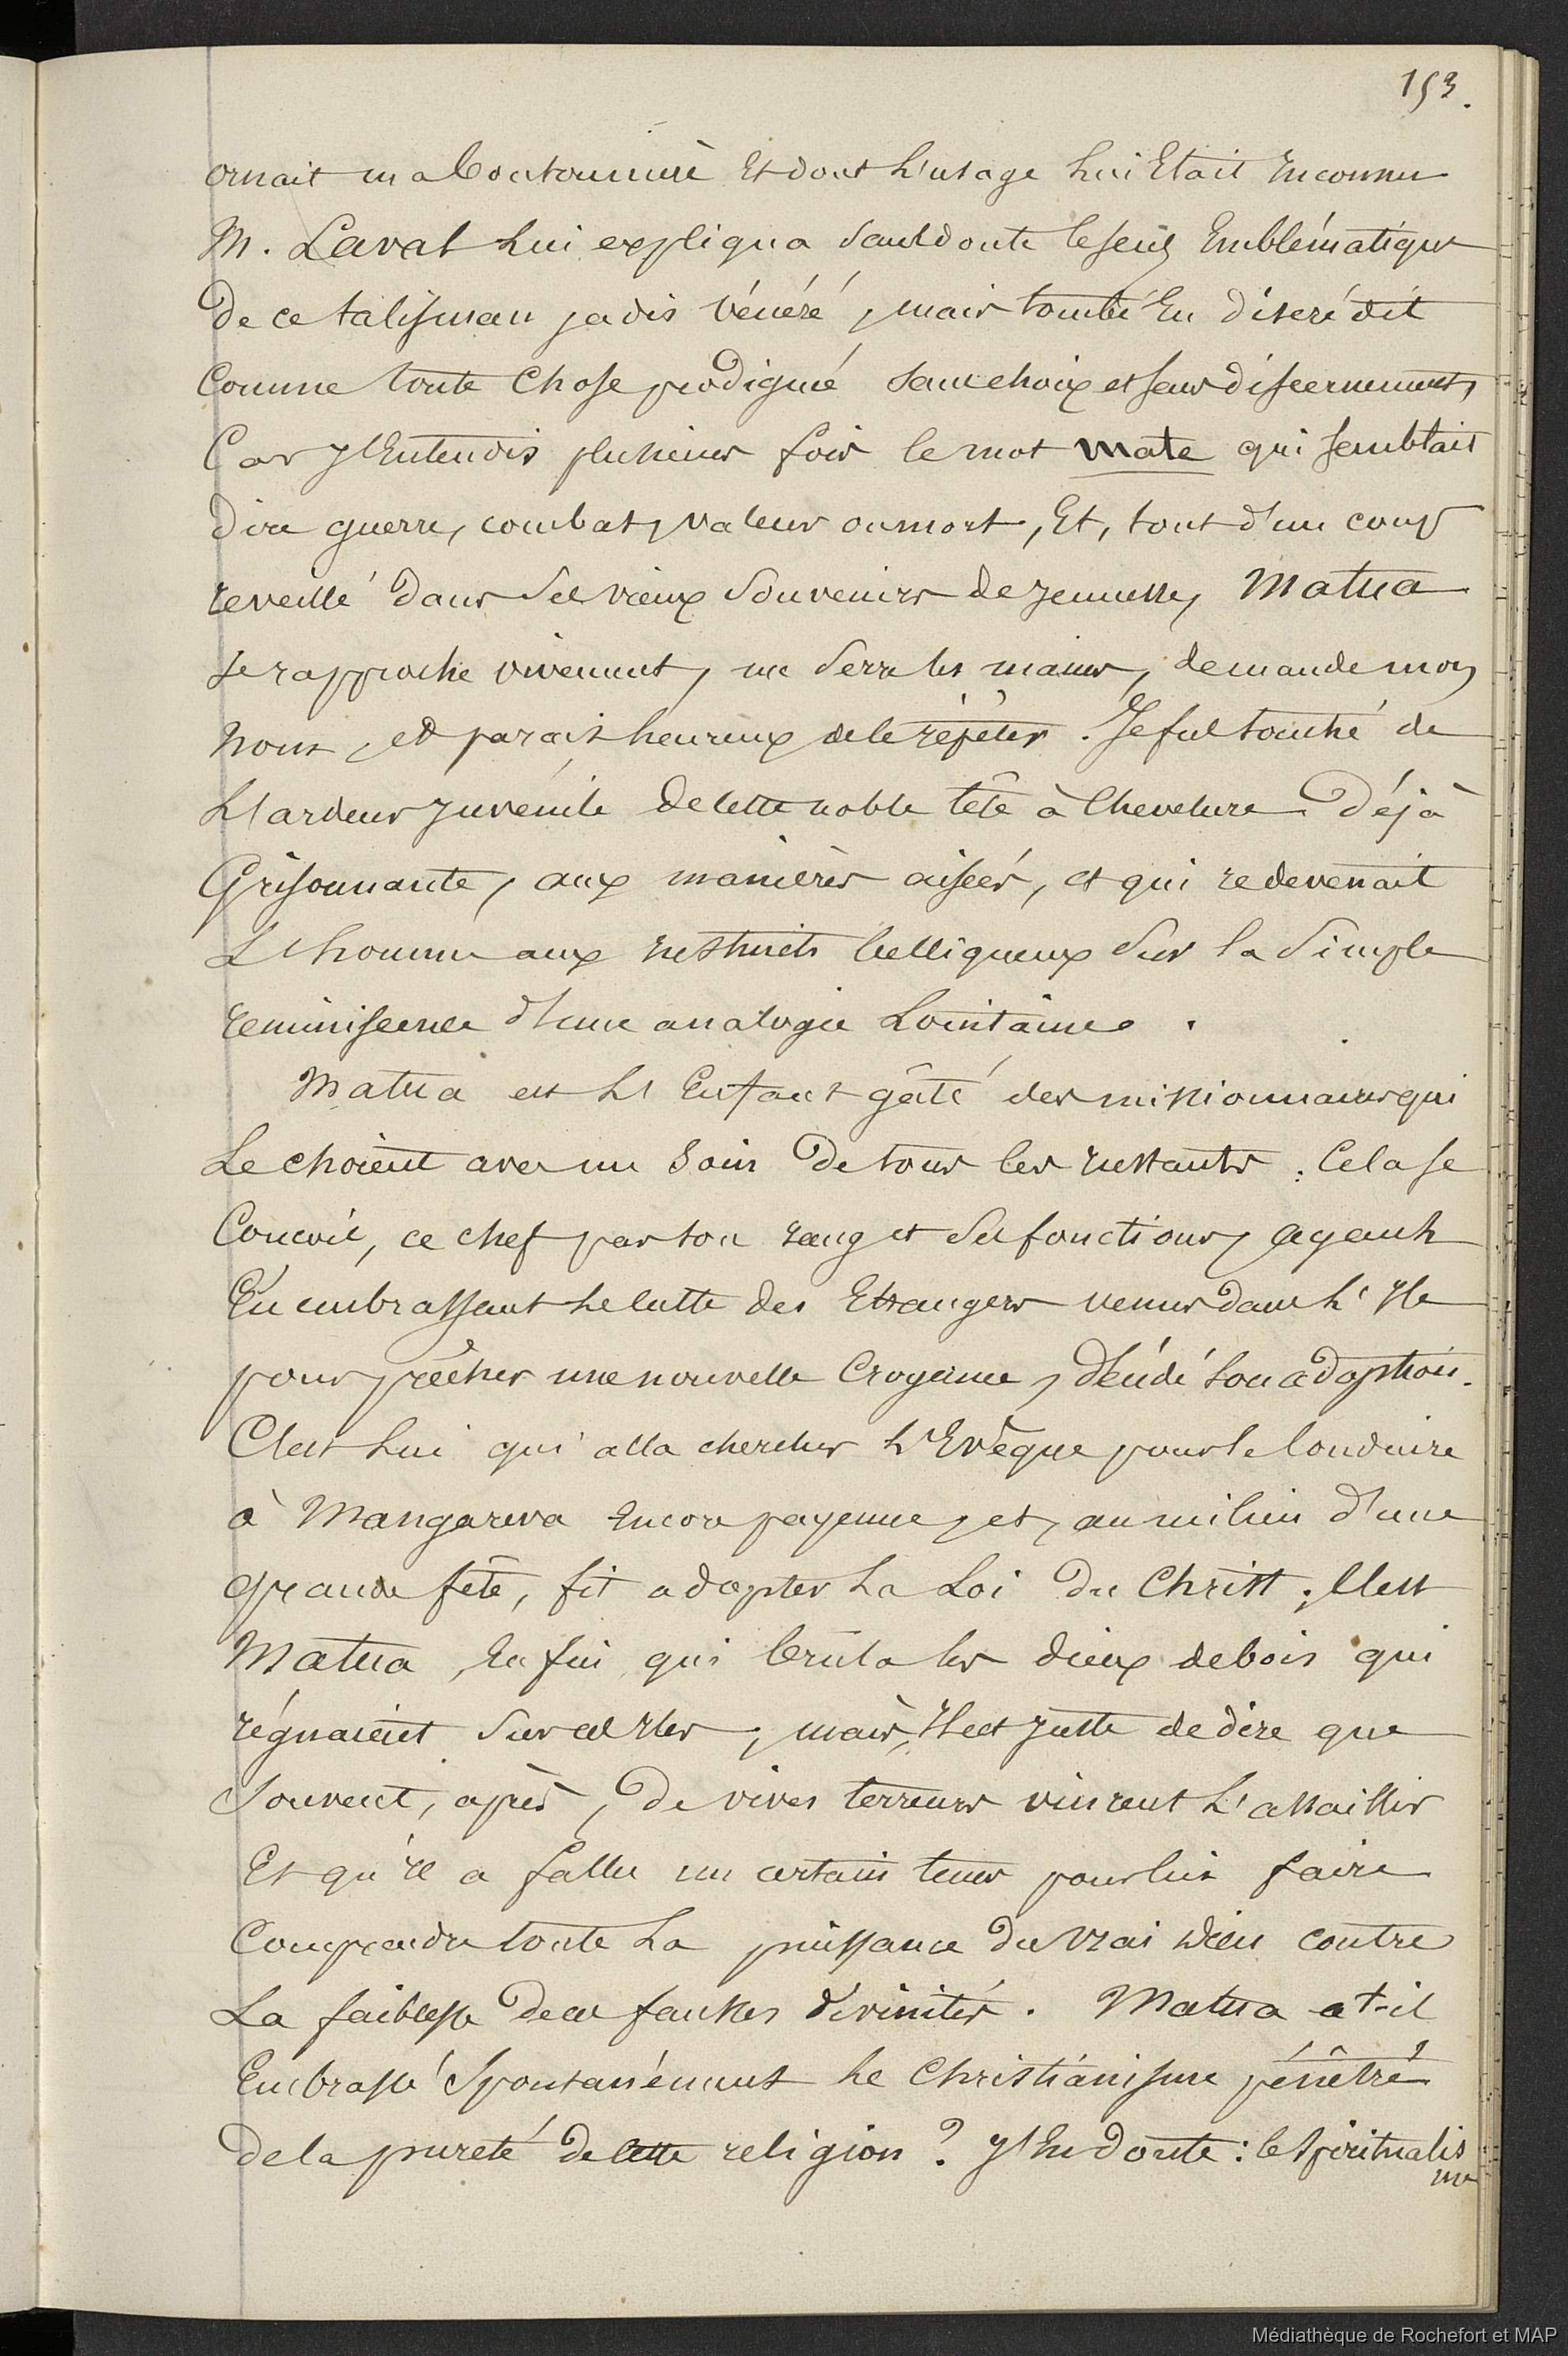 153.
ornait ma boutonnière Et dont L'usage Lui Etait Inconnu
M. Laval Lui expliqua sans doute le sens Emblématique
De ce talisman jadis vénéré, mais tombé En discrédit
Comme toute Chose prodiguée sans choix et sans discernement,
Car j'Entendis plusieurs fois le mot mate qui semblait
dire guerre, combat, valeur ou mort, Et, tout d'un coup
reveillé dans ses vieux souvenirs de jeunesse, Matua
se rapproche vivement, me serre les mains, demande mon
nom, et parait heureux de le répéter. Je fus touché de
L'ardeur juvénile de cette noble tête à Chevelure Déjà
Grisonnante, aux manières aisées, et qui redevenait
L'homme aux Instincts belliqueux sur la simple
reminiscence d'une analogie Lointaine.
Matua est L'Enfant gâté des missionnaires qui
Le choient avec un soin de tous les Instants. Cela se
Concoit, ce chef par son rang et ses fonctions, ayant
En embrassant le culte des Etrangers venus dans L'Ile
pour prêcher une nouvelle Croyance, décidé son adoption.
C'est Lui qui alla chercher L'Evêque pour le Conduire
à Mangareva Encore payenne, et, au milieu d'une
grande fête, fit adopter La Loi du Christ; C'est
Matua, Enfin, qui brûla les dieux de bois qui
régnaient sur ces Iles, mais, Il est juste de dire que
souvent, après, De vives terreurs vinrent L'assaillir
Et qu'Il a fallu un certain tems pour lui faire
Comprendre toute La puissance du vrai Dieu contre
La faiblesse De ces fausses divinités. Matua a t-il
Embrassé spontanément Le Christianisme pénétré
de la pureté de cette religion? J'En doute: le spiritualis
me
Médiathèque de Rochefort et MAP